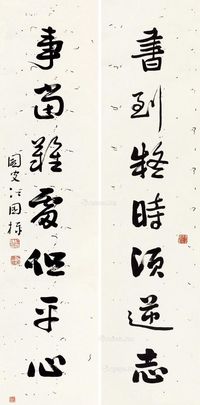 書到疑時須逆志
事當難處但平心